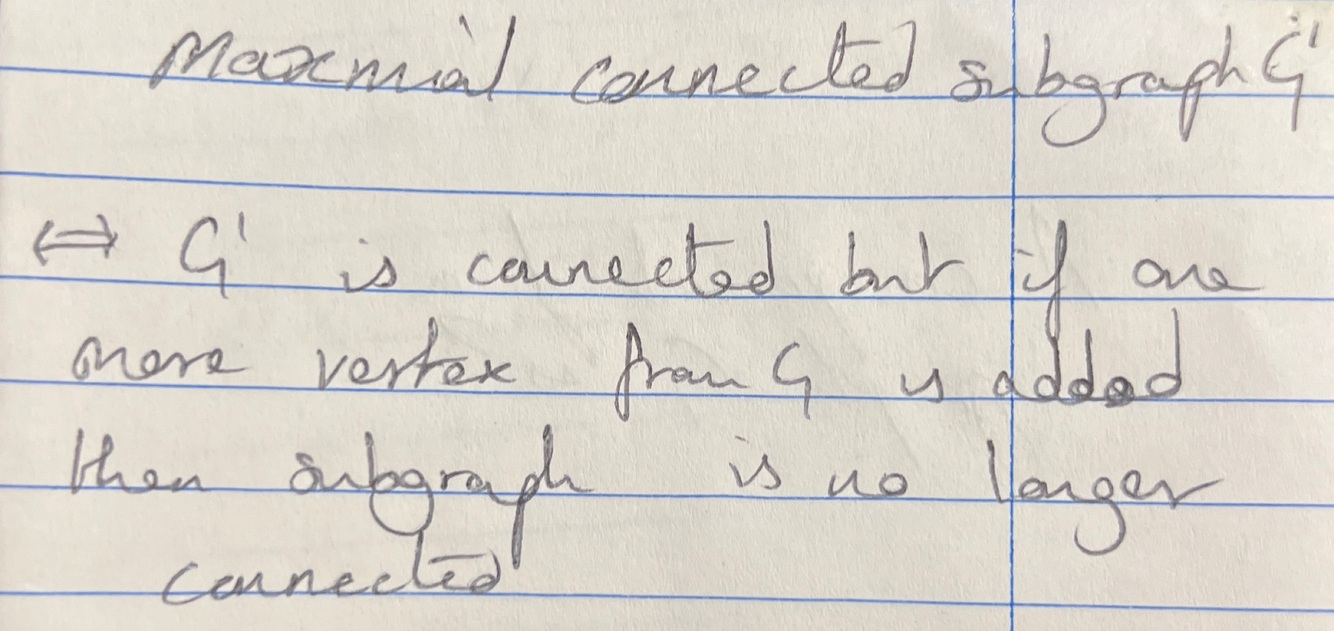 Maxmial connected subgraph G'
⇔ G' is connected but if one
more vertex from G is added
then subgraph is no longer
connected